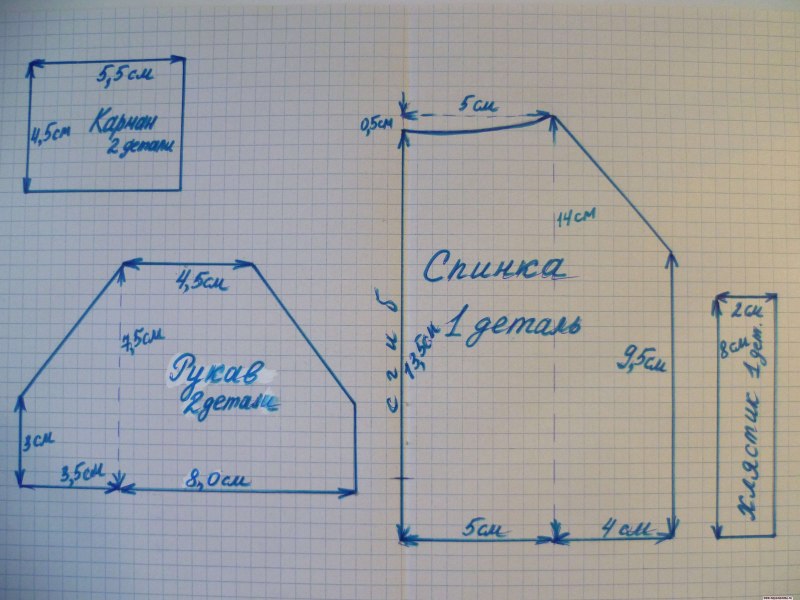 5,5см
4,5см
Карман
2 детали
4,5см
7,5см
Рукав
2 детали
3см
3,5см
8,0см
5см
0,5см
14см
Спинка
1 деталь
сгиб
13,5см
9,5см
5см
4см
2см
8см
Хлястик 1 дет.